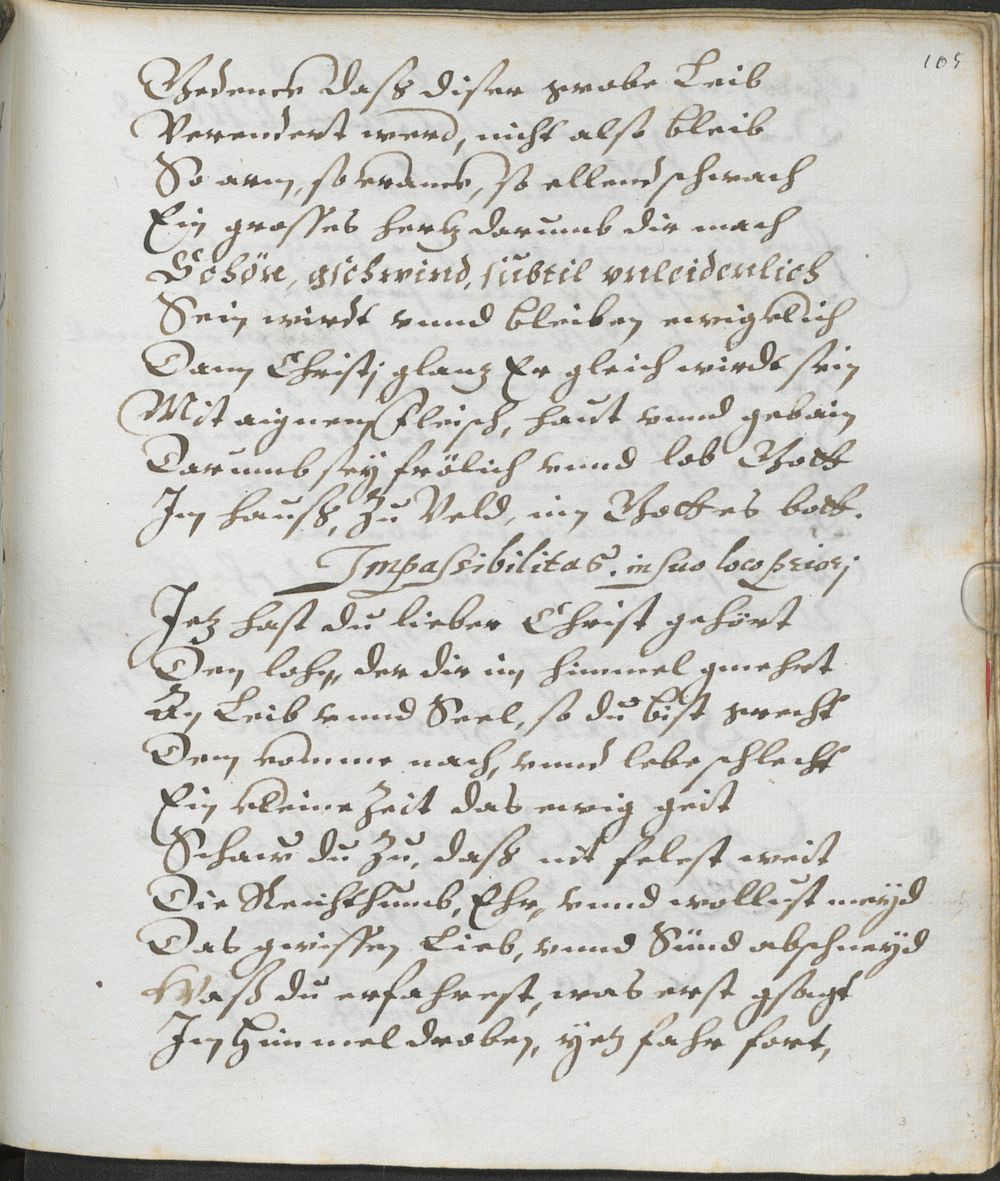 105
Bedenck dass diser grobe Leib
Verendert werd, nicht also bleib
So arm, so kranck, so ellend schwach
Ein grosses hertz darumb dir mach
Schön, gschwind, subtil vnleidenlich
Sein wirdt vnnd bleiben ewigklich
Dann Christj glantz Er gleich wirdt sein
Mit aignem Fleisch, haut vnnd gebain
Darumb sey frölich vnnd lob Gott
Im hauss, Zu Veld, in Gottes bott.
Impassibilitas. in suo loco priorj
Jetz hast du lieber Christ gehört
Den lohn, der dir im himmel gmehrt
An Leib vnnd Seel, so du bist grecht
Dem komme nach, vnnd lebe schlecht
Ein kleine Zeit das ewig geit
Schaw du Zu, dass nit felest weit
Die Reichthumb, Ehr, vnnd wollust meyd
Das gwissen Lieb, vnnd Sünd abschneyd
Wass du erfahrest, was erst gsagt
Im Himmel droben, yetz fahr fort,